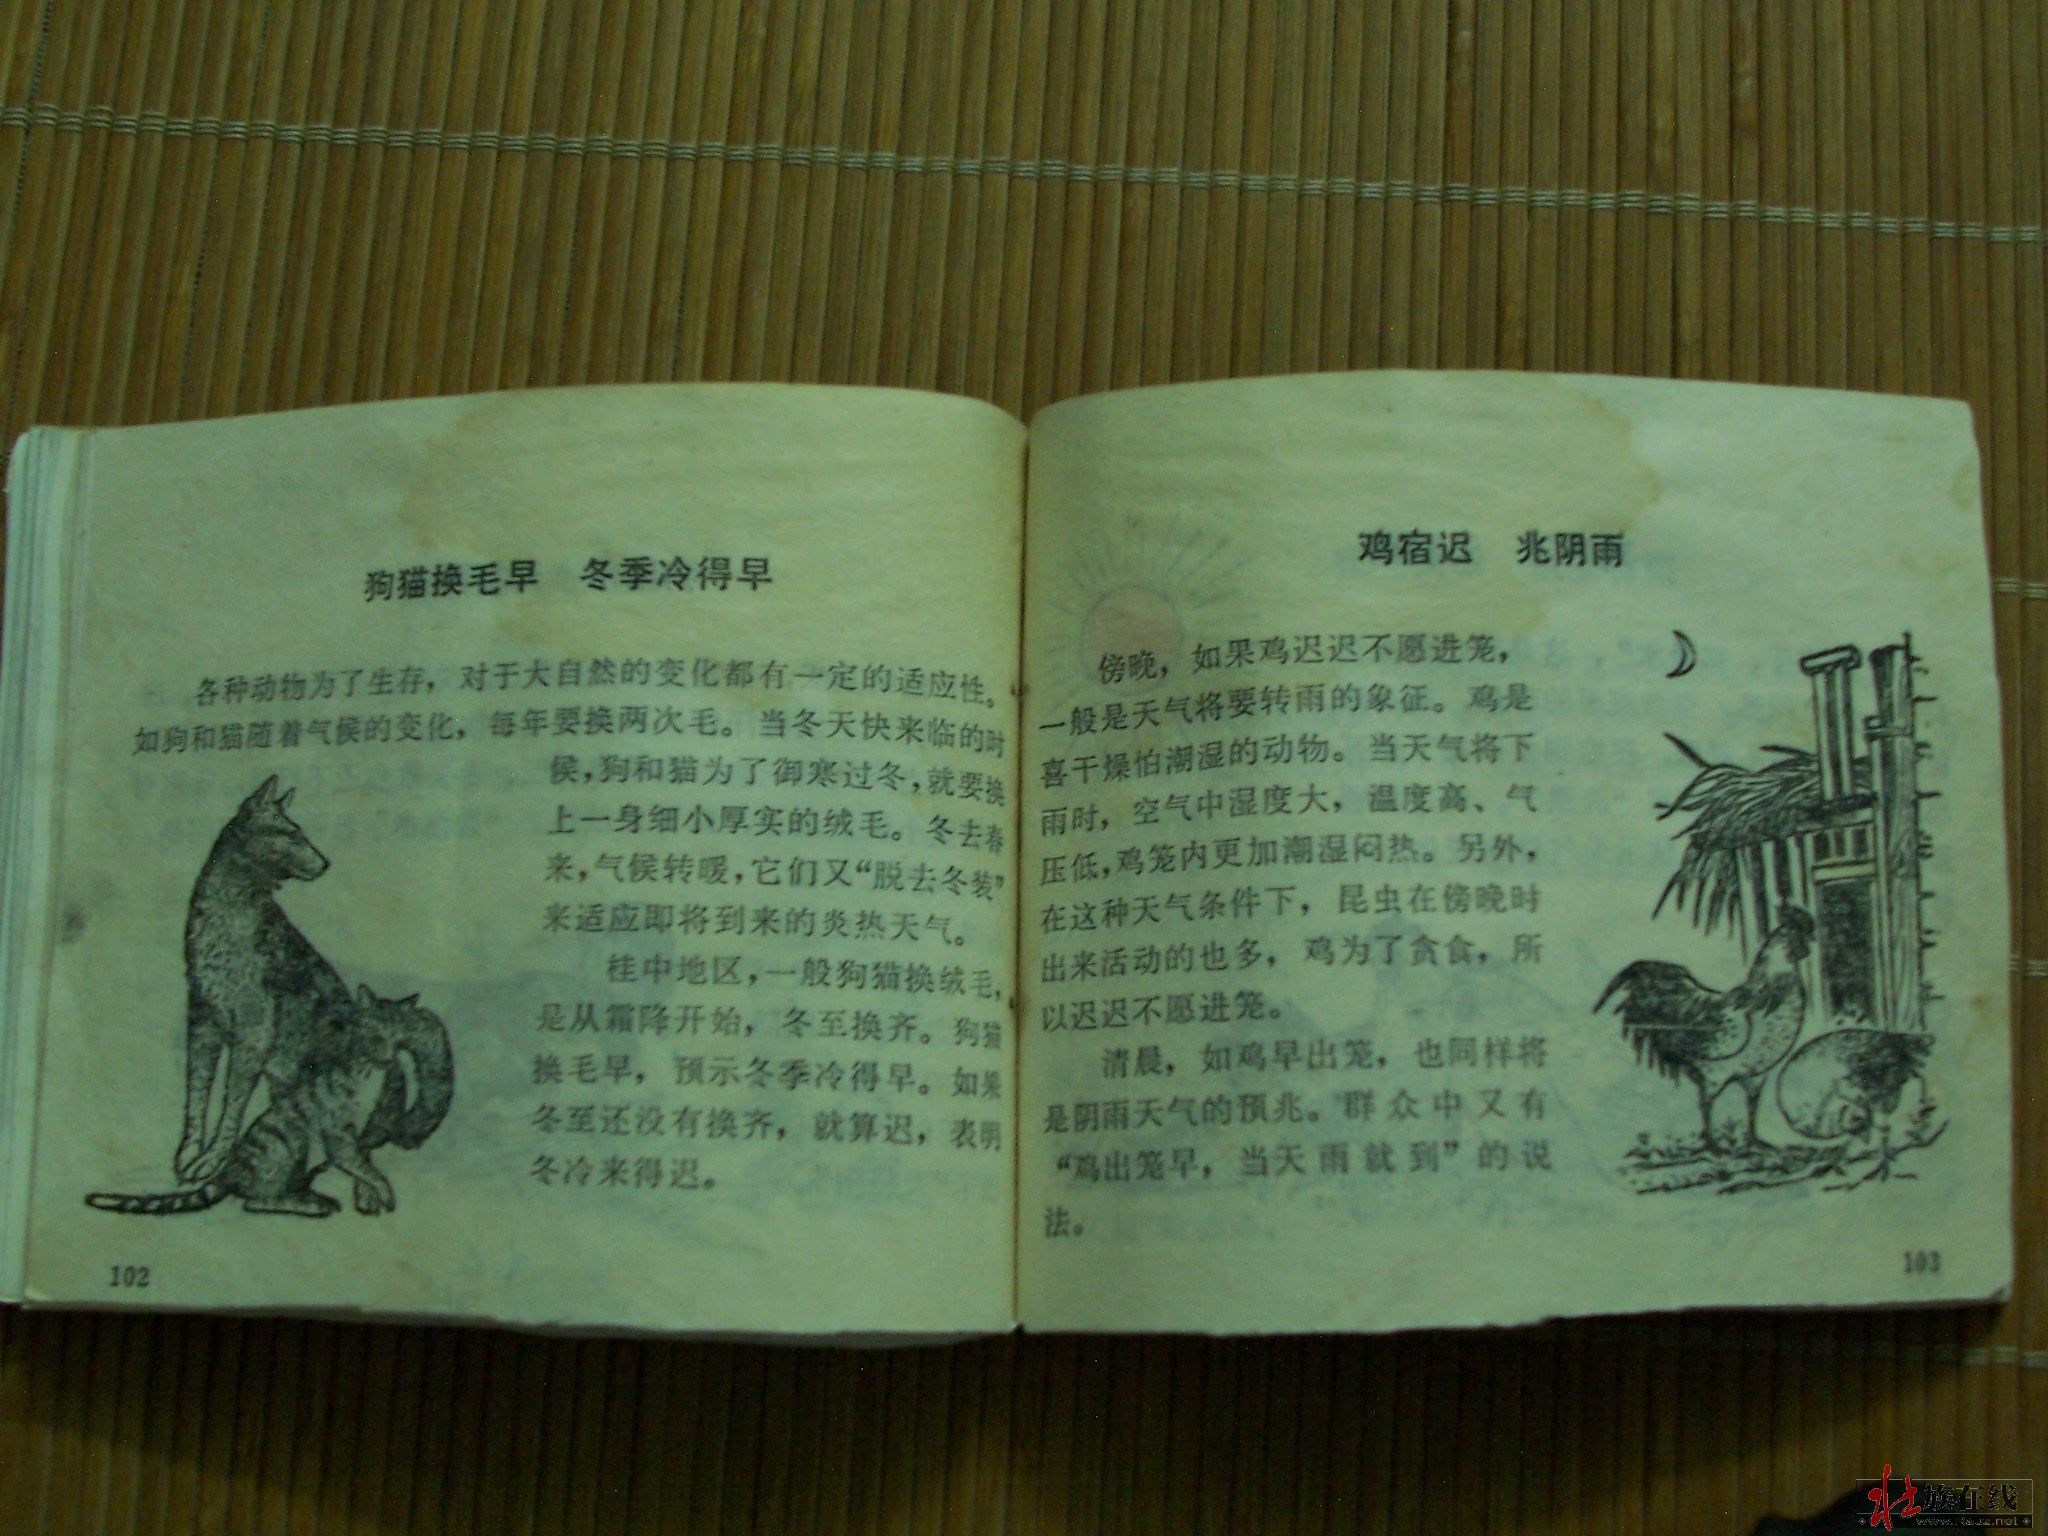 狗猫换毛早　冬季冷得早
各种动物为了生存，对于大自然的变化都有一定的适应性。
如狗和猫随着气候的变化，每年要换两次毛。当冬天快来临的时
候，狗和猫为了御寒过冬，就要换
上一身细小厚实的绒毛。冬去春
来，气候转暖，它们又“脱去冬装”
来适应即将到来的炎热天气。
桂中地区，一般狗猫换绒毛，
是从霜降开始，冬至换齐。狗猫
换毛早，预示冬季冷得早。如果
冬至还没有换齐，就算迟，表明
冬冷来得迟。
102
鸡宿迟　兆阴雨
傍晚，如果鸡迟迟不愿进笼，
一般是天气将要转雨的象征。鸡是
喜干燥怕潮湿的动物。当天气将下
雨时，空气中湿度大，温度高、气
压低，鸡笼内更加潮湿闷热。另外，
在这种天气条件下，昆虫在傍晚时
出来活动的也多，鸡为了贪食，所
以迟迟不愿进笼。
清晨，如鸡早出笼，也同样将
是阴雨天气的预兆。群众中又有
“鸡出笼早，当天雨就到”的说
法。
103
壮族在线
www.rauz.net